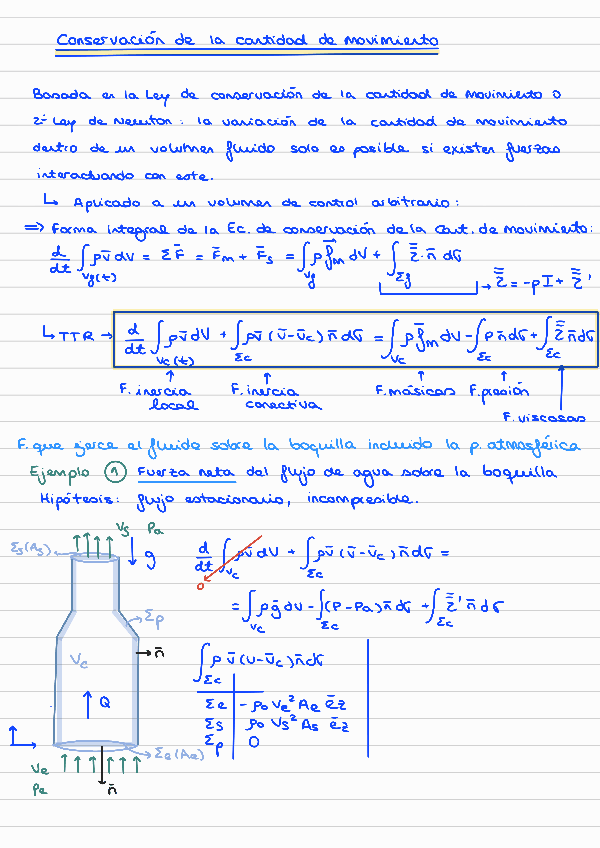 Conservación de la cantidad de movimiento
Basada en la Ley de conservación de la cantidad de movimiento o
2ª Ley de Newton: la variación de la cantidad de movimiento
dentro de un volumen fluido solo es posible si existen fuerzas
interactuando con este.
↳ Aplicado a un volumen de control arbitrario:
⇒ Forma integral de la Ec. de conservación de la Cant. de movimiento:
d/dt ∫_{Vf(t)} ρv̄ dV = ΣF̄ = F̄m + F̄s = ∫_{Vf} ρf̄m dV + ∫_{Σf} τ̿·n̄ dσ
→ τ̿ = -pI + τ̿'
↳ TTR → d/dt ∫_{Vc(t)} ρv̄ dV + ∫_{Σc} ρv̄ (v̄-v̄c) n̄ dσ = ∫_{Vc} ρf̄m dV - ∫_{Σc} p n̄ dσ + ∫_{Σc} τ̿' n̄ dσ
F. inercia local
F. inercia convectiva
F. másicas
F. presión
F. viscosas
F. que ejerce el fluido sobre la boquilla incluido la p. atmosférica
Ejemplo ① Fuerza neta del flujo de agua sobre la boquilla
Hipótesis: flujo estacionario, incompresible.
Vs Pa
Σs(As)
g
d/dt ∫_{Vc} ρv̄ dV + ∫_{Σc} ρv̄ (v̄-v̄c) n̄ dσ =
0
= ∫_{Vc} ρḡ dV - ∫_{Σc} (P-Pa) n̄ dσ + ∫_{Σc} τ̿' n̄ dσ
Σp
n̄
Vc
Q
∫_{Σc} ρ v̄ (v-v̄c) n̄ dσ
Σe | -ρ₀ Ve² Ae ēz
Σs | ρ₀ Vs² As ēz
Σp | 0
Σe(Ae)
Ve
Pe
n̄